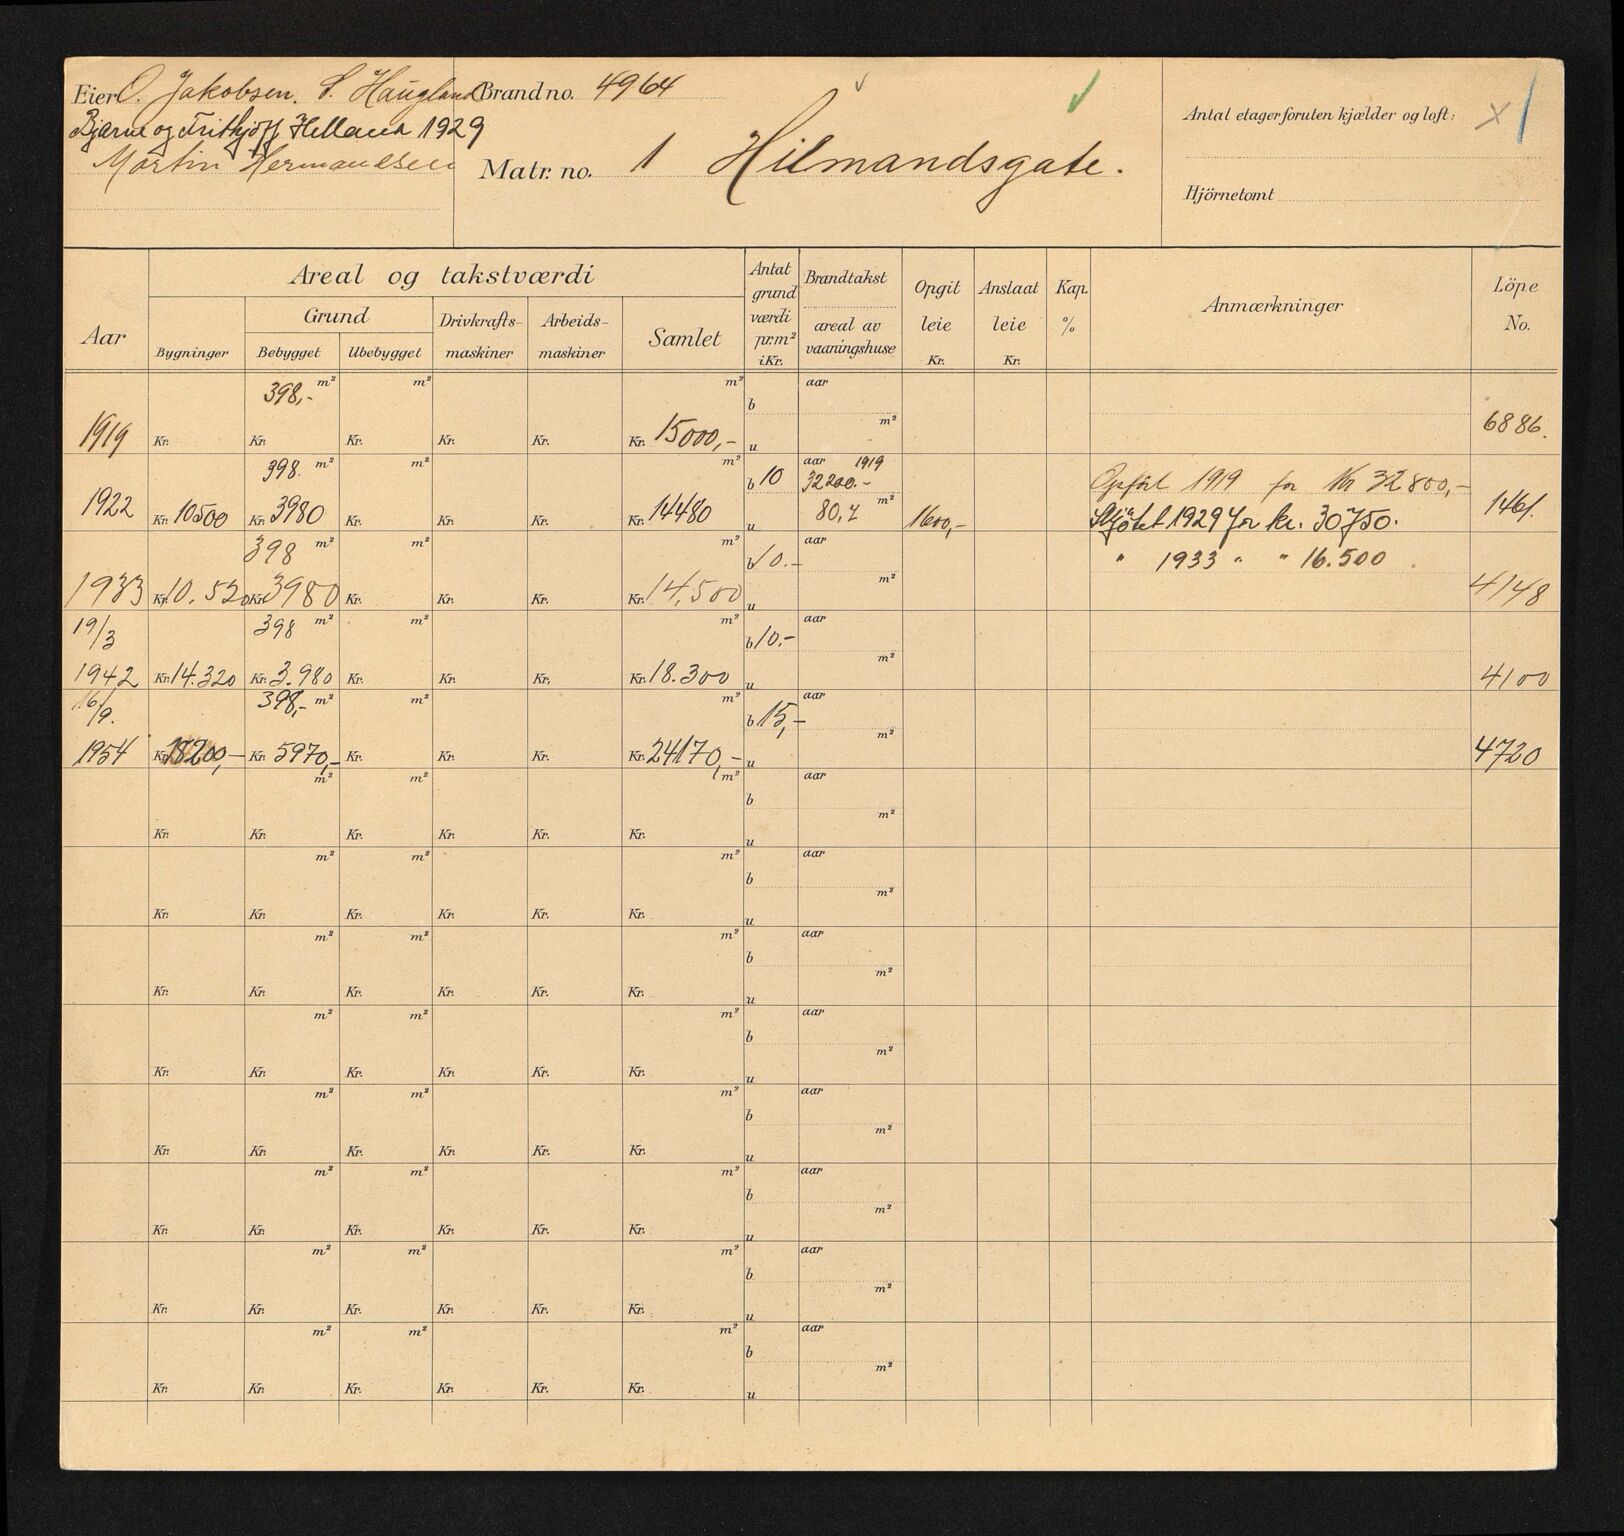 Eier O. Jakobsen. S. Haugland Brand no. 4964
Bjarne og Frithjof Helland 1929
Martin Hermandsen
Matr. no. 1 Hilmandsgate.
Antal etager foruten kjælder og loft: x 1
Hjörnetomt
Aar
Areal og takstværdi
Grund
Bygninger Bebygget Ubebygget
Drivkrafts-
maskiner
Arbeids-
maskiner
Samlet
Antat
grund
værdi
pr. m²
i Kr.
Brandtakst
areal av
vaaningshuse
Opgit
leie
Kr.
Anslaat
leie
Kr.
Kap.
%
Anmærkninger
Löpe
No.
398,- m² m² m² b aar
m²
1919 Kr. Kr. Kr. Kr. Kr. Kr. 15000,- u 6886.
398. m² m² m² b 10 aar 1919
32200.- Opfört 1919 for Kr 32800,-
1922 Kr. 10500 Kr. 3980 Kr. Kr. Kr. Kr. 14480 u 80,7 m² 1600,- Skjötet 1929 for kr. 30750. 1461.
398 m² m² m² b 10.- aar " 1933 " " 16.500
m²
1933 Kr. 10.520 Kr. 3980 Kr. Kr. Kr. Kr. 14.500 u 4148
19/3 398 m² m² m² b 10.- aar
m²
1942 Kr. 14.320 Kr. 3.980 Kr. Kr. Kr. Kr. 18.300 u 4100
16/9. 398,- m² m² m² b 15,- aar
m²
1954 Kr. 18200,- Kr. 5970,- Kr. Kr. Kr. Kr. 24170,- u 4720
m² m² m² b aar
m²
Kr. Kr. Kr. Kr. Kr. Kr. u
m² m² m² b aar
m²
Kr. Kr. Kr. Kr. Kr. Kr. u
m² m² m² b aar
m²
Kr. Kr. Kr. Kr. Kr. Kr. u
m² m² m² b aar
m²
Kr. Kr. Kr. Kr. Kr. Kr. u
m² m² m² b aar
m²
Kr. Kr. Kr. Kr. Kr. Kr. u
m² m² m² b aar
m²
Kr. Kr. Kr. Kr. Kr. Kr. u
m² m² m² b aar
m²
Kr. Kr. Kr. Kr. Kr. Kr. u
m² m² m² b aar
m²
Kr. Kr. Kr. Kr. Kr. Kr. u